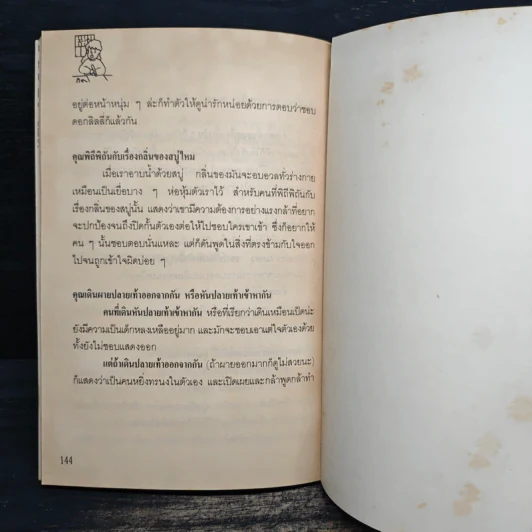 อยู่ต่อหน้าหนุ่ม ๆ ล่ะก็ทำตัวให้ดูน่ารักหน่อยด้วยการตอบว่าชอบ
ดอกลิลลี่ก็แล้วกัน
คุณพิถีพิถันกับเรื่องกลิ่นของสบู่ไหม
เมื่อเราอาบน้ำด้วยสบู่ กลิ่นของมันจะอบอวลทั่วร่างกาย
เหมือนเป็นเยื่อบาง ๆ ห่อหุ้มตัวเราไว้ สำหรับคนที่พิถีพิถันกับ
เรื่องกลิ่นของสบู่นั้น แสดงว่าเขามีความต้องการอย่างแรงกล้าที่อยาก
จะปกป้องจนถึงปิดกั้นตัวเองต่อให้ไปชอบใครเขาเข้า ซึ่งก็อยากให้
คน ๆ นั้นชอบตอบนั่นแหละ แต่ก็ดันพูดในสิ่งที่ตรงข้ามกับใจออก
ไปจนถูกเข้าใจผิดบ่อย ๆ
คุณเดินผายปลายเท้าออกจากกัน หรือหันปลายเท้าเข้าหากัน
คนที่เดินหันปลายเท้าเข้าหากัน หรือที่เรียกว่าเดินเหมือนเป็ดน่ะ
ยังมีความเป็นเด็กหลงเหลืออยู่มาก และมักจะชอบเอาแต่ใจตัวเองด้วย
ทั้งยังไม่ชอบแสดงออก
แต่ถ้าเดินปลายเท้าออกจากกัน (ถ้าผายออกมากก็ดูไม่สวยนะ)
ก็แสดงว่าเป็นคนหยิ่งทรนงในตัวเอง และเปิดเผยและกล้าพูดกล้าทำ
144